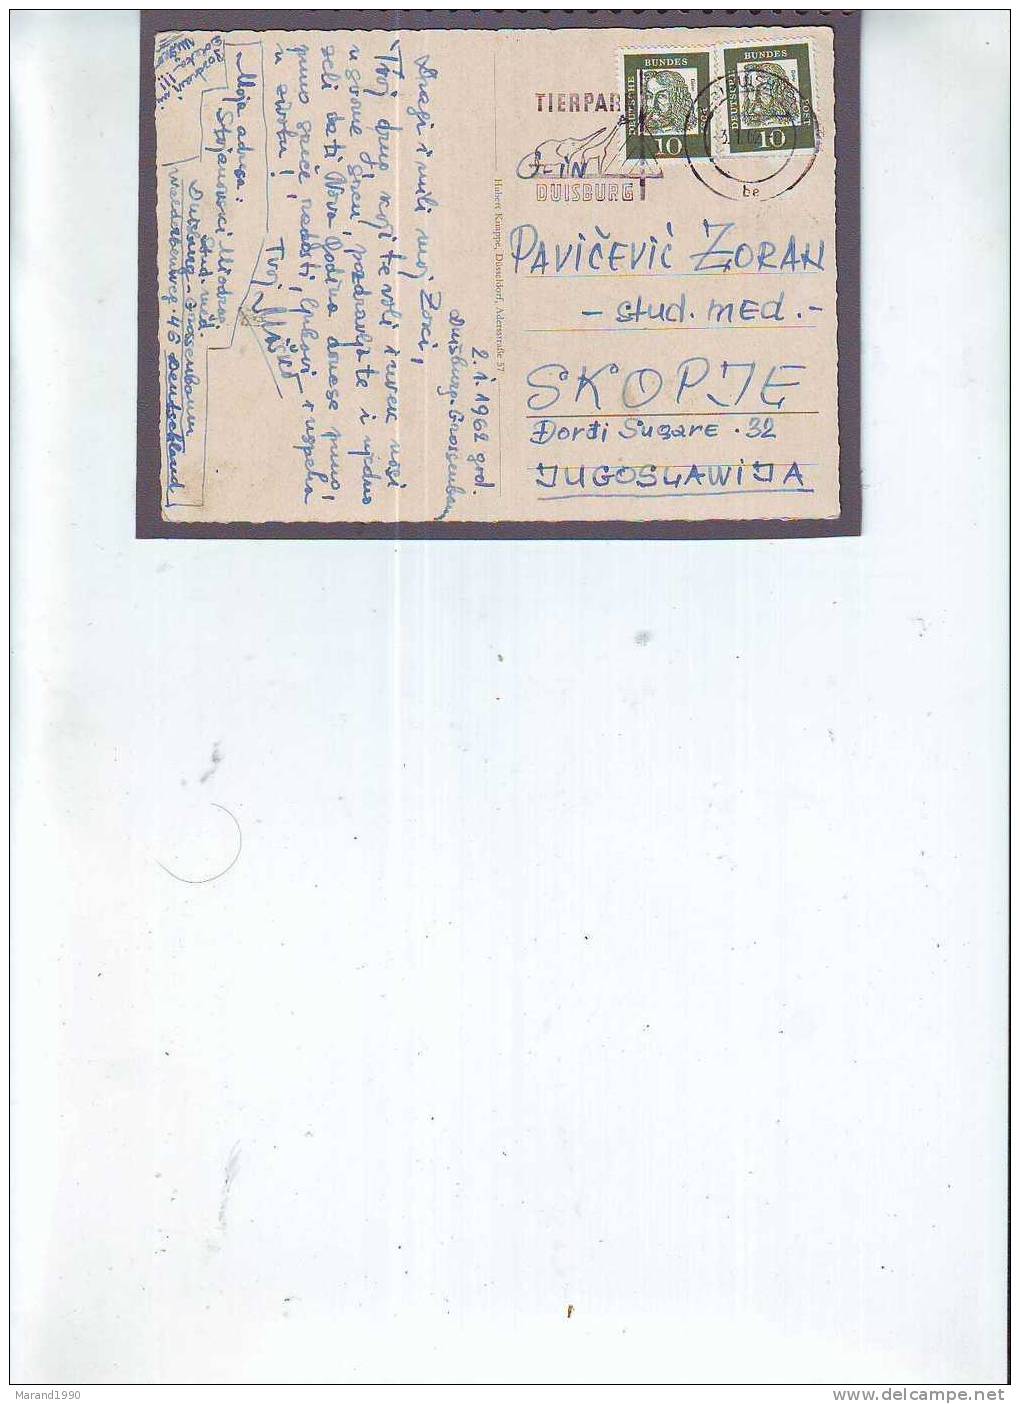 Duisburg-Grossenbaum
2.1.1962 god.
Dragi i mili moj Zoki,
Tvoj drug koji te voli i uvek nosi
u svome srcu, pozdravlja te i ujedno
želi da ti Nova Godina donese puno,
puno sreće, radosti, ljubavi i uspeha
u životu!
Tvoj
Moja adresa:
Stojanović Miodrag
stud. med.
Duisburg-Grossenbaum
46 Deutschland
Hubert Knappe, Düsseldorf, Adersstraße 57
TIERPARK
IN
DUISBURG
be
DEUTSCHE
BUNDES
POST
10
DEUTSCHE
BUNDES
POST
10
PAVIČEVIĆ ZORAN
- stud. med. -
SKOPJE
Đorđi Sugare .32
JUGOSLAWIJA
Marand1990
delcampe.net